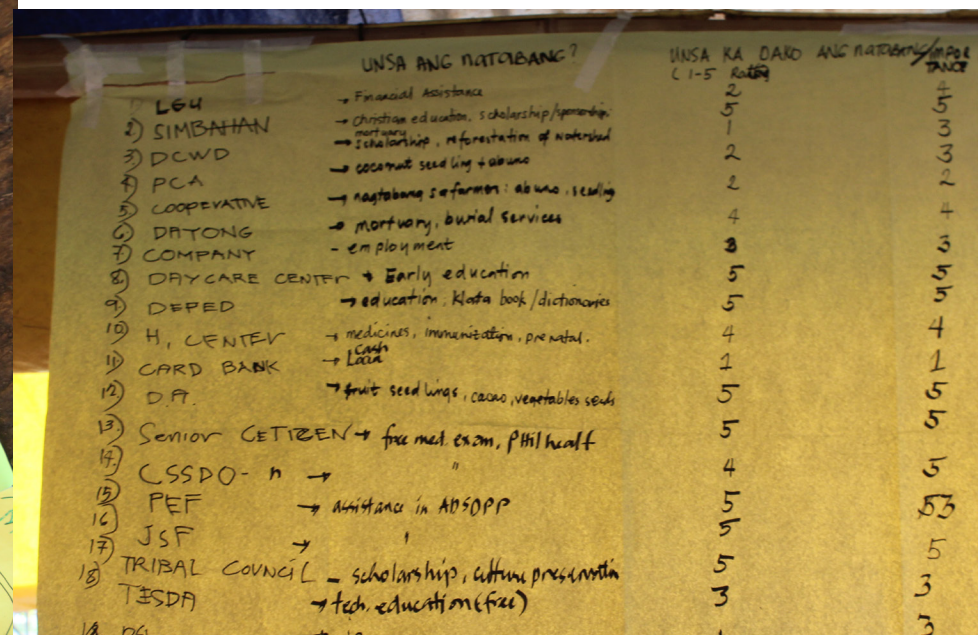 UNSA ANG NATABANG? UNSA KA DAKO ANG NATABANG/IMPORTANCE
( 1-5 Rating
1) LGU → Financial Assistance 2 4
2) SIMBAHAN → Christian education, scholarship/sponsorship, mortuary 5 5
3) DCWD → scholarship, reforestation of watershed 1 3
4) PCA → coconut seedling + abuno 2 3
5) COOPERATIVE → nagtabang sa farmer: abuno, seedling 2 2
6) DAYONG → mortuary, burial services 4 4
7) COMPANY - employment 3 3
8) DAYCARE CENTER → Early education 5 5
9) DEPED → education, Klata book/dictionaries 5 5
10) H. CENTER → medicines, immunization, prenatal. 4 4
11) CARD BANK → Cash Loan 1 1
12) D.A. → fruit seedlings, cacao, vegetables seeds 5 5
13. Senior CETIZEN → free med. exam, PHilhealt 5 5
14. CSSDO- n → " 4 5
15) PEF → assistance in ADSDPP 5 53
16 JSF → " 5
17) TRIBAL COUNCIL - scholarship, culture preservation 5 5
18) TESDA → tech. education (free) 3 3